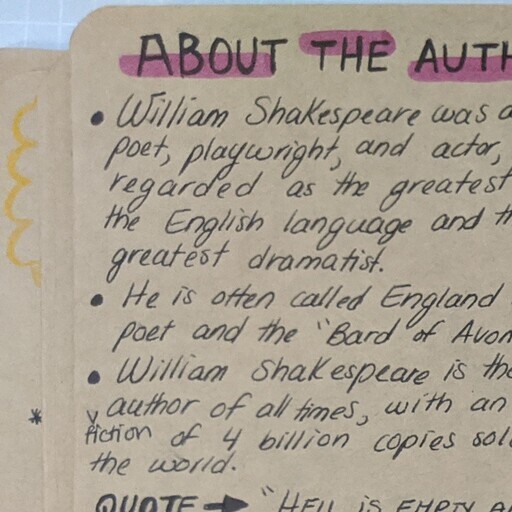 ABOUT THE AUTH
• William Shakespeare was a
poet, playwright, and actor,
regarded as the greatest
the English language and th
greatest dramatist.
• He is often called England
poet and the "Bard of Avon
• William Shakespeare is the
author of all times, with an
* fiction of 4 billion copies sol
the world.
QUOTE → "HELL IS EMPTY A